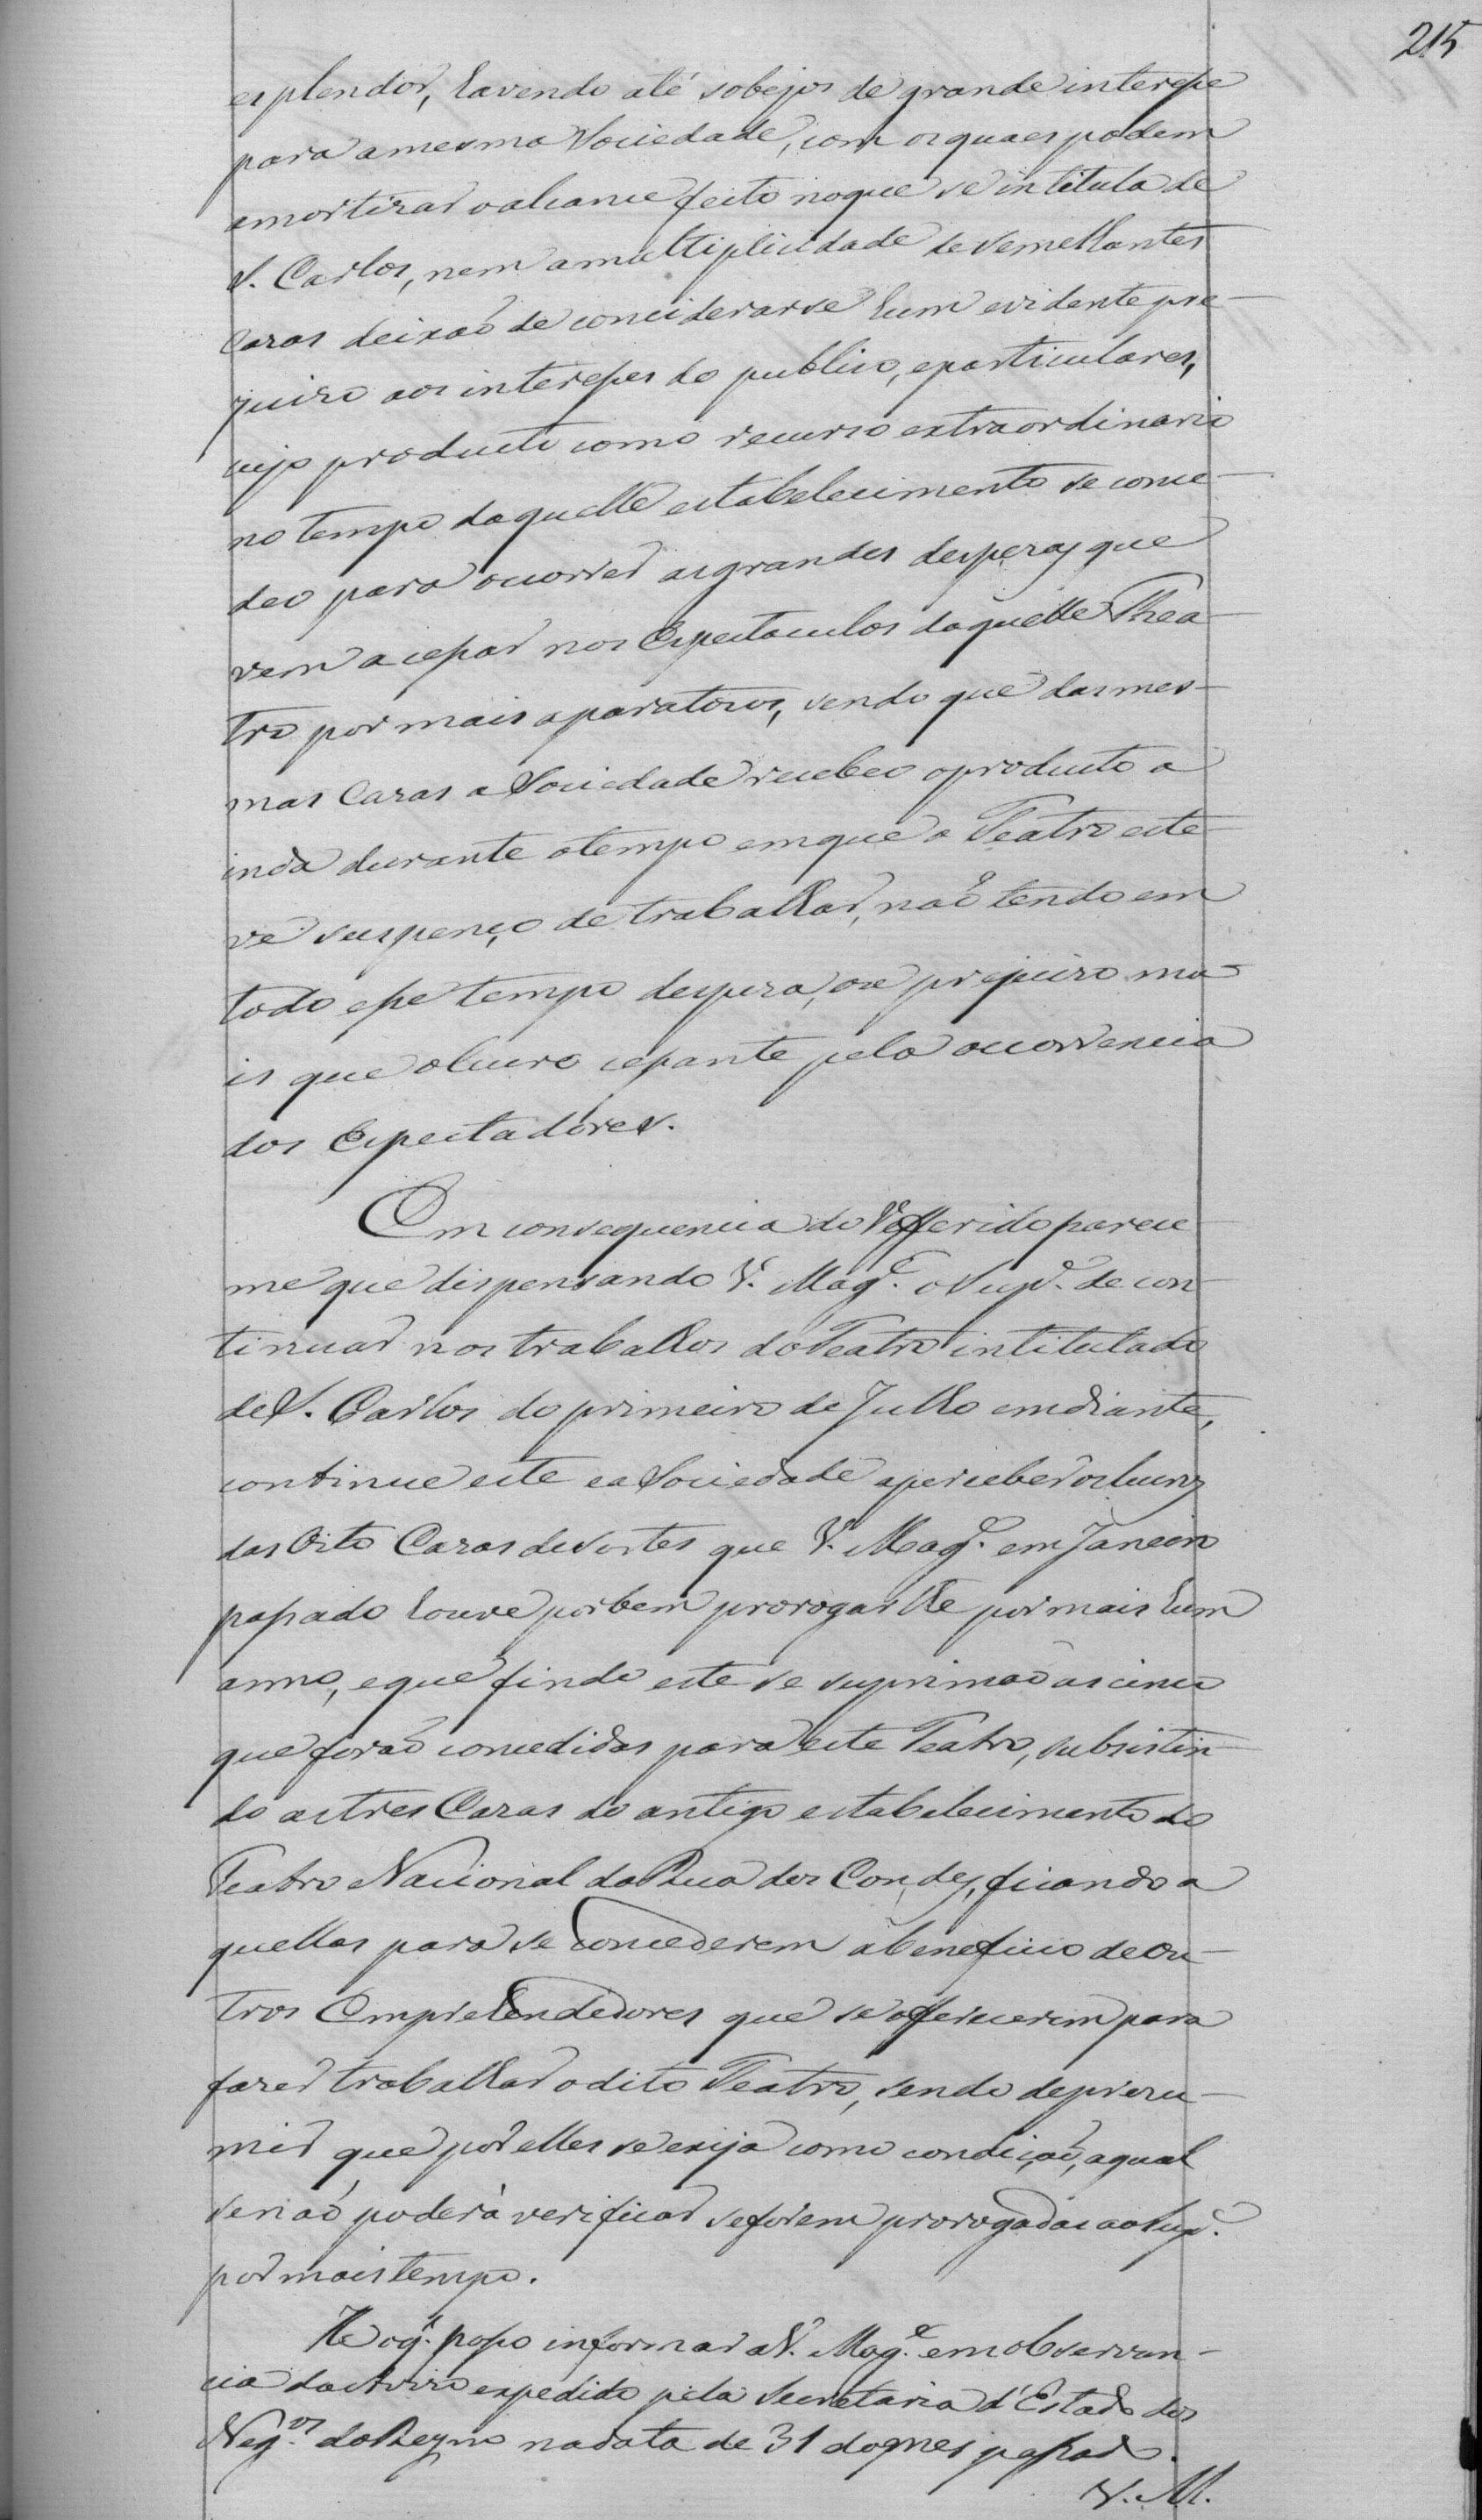 215
esplendor, havendo até sobejos de grande interesse
para a mesma Sociedade, com os quaes podem
amortizar o alcance feito no que se intitula de
S. Carlos, nem a multiplicidade de semelhantes
Cazas deixaõ de conciderarse hum evidente pre-
juizo aos interesses do publico, e particulares,
cujo producto como recurso extraordinario
no tempo daquelle estabelecimento se conce-
deo para ocorrer as grandes despezas que
vem a cessar nos Espectaculos daquelle Thea-
tro por mais aparatozos, sendo que das mes-
mas Cazas a Sociedade recebeo o producto a
inda durante o tempo em que o Teatro este-
ve suspenço de trabalhar, naõ tendo em
todo esse tempo despeza, ou prejuizo ma
is que o lucro cessante pela occorrencia
dos Espectadores.
Em consequencia do Refferido parece-
me que dispensando V. Mag.e o Sup.e de con-
tinuar nos trabalhos do Teatro intitulado
de S. Carlos do primeiro de Julho em diante,
continue este e a Sociedade a perceber os lucros
das Oito Cazas de Sortes que V. Mag.e em Janeiro
passado houve por bem prorogar lhe por mais hum
anno, e que findo este se suprimaõ as cinco
que foraõ concedidas para este Teatro, subsistin-
do as tres Cazas do antigo estabelecimento do
Teatro Nacional da Rua dos Condes, ficando a
quellas para se concederem a beneficio de ou-
tros Emprehendedores que se offerecerem para
fazer trabalhar o dito Teatro, sendo de prezu-
mir que por elles se exija como condiçaõ, a qual
se naõ poderà verificar se forem prorogadas ao Sup.e
por mais tempo.
He o q. posso informar a V. Mag.e em observan-
cia do Avizo expedido pela Secretaria d'Estado dos
Neg.os do Reyno na data de 31 do mes passado.
V. M.